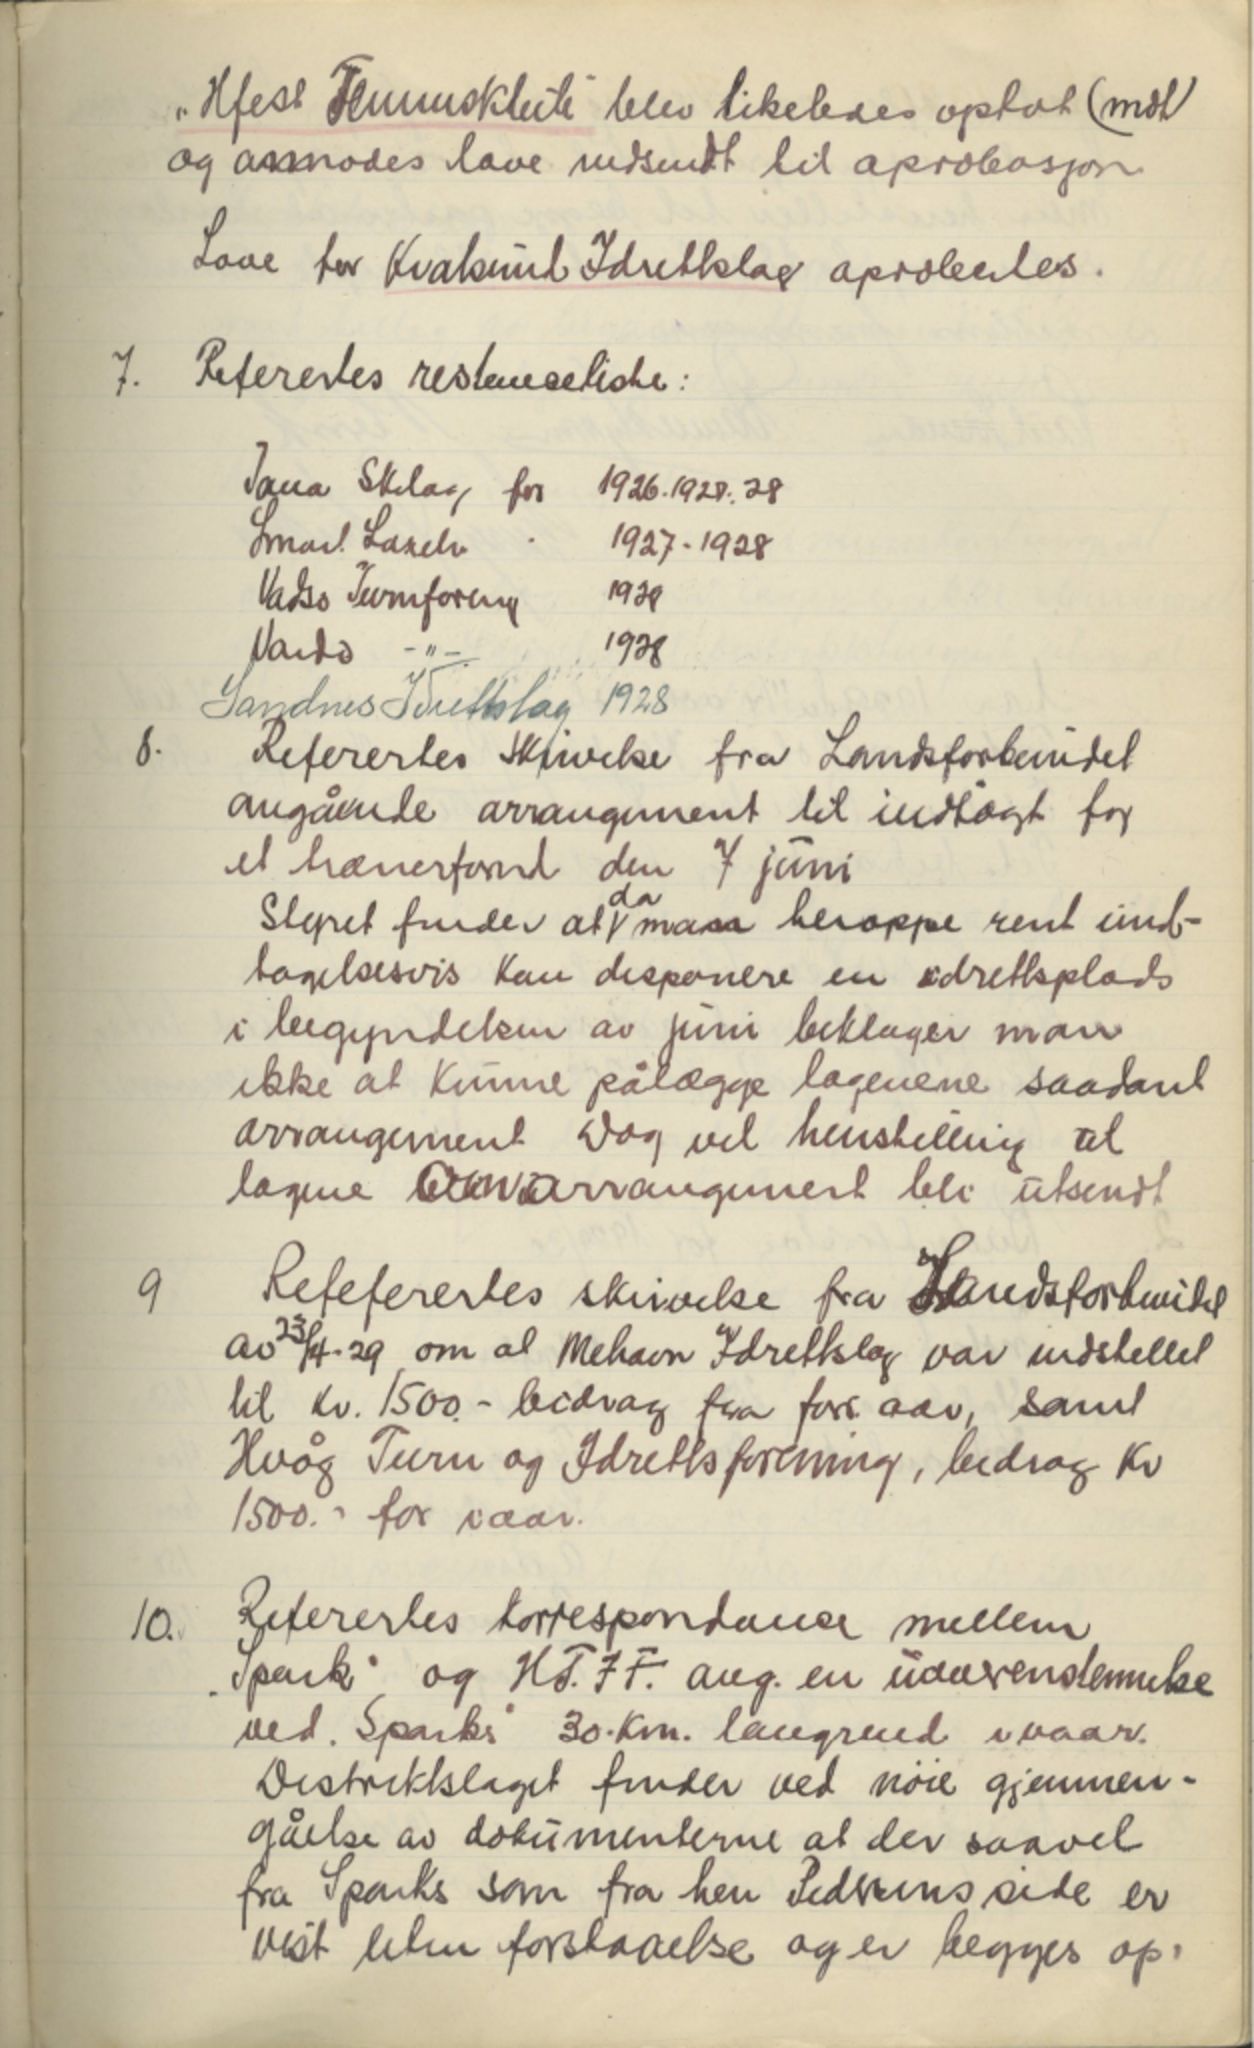 "Hfest Tennisklub" blev likeledes optat (mdt)
og anmodes love indsendt til aprobasjon
Love for Kvalsund Idrettslag aprobertes.
7. Referertes restanseliste:
Tana Skilag for 1926.1927.28
Smaal. Laxelv " 1927-1928
Vadsø Turnforening 1928
Vardø -"- 1928
Sandnes Idrettslag 1928
8. Referertes skrivelse fra Landsforbundet
angående arrangement til indtægt for
et trænerfond den 7 juni
Styret finder at da man heroppe rent und-
tagelsesvis kan disponere en idrettsplads
i begyndelsen av juni beklager man
ikke at kunne pålægge lagenene saadant
arrangement Dog vil henstilling til
lagene arrangement bli utsendt
9 Refeferertes skrivelse fra Landsforbundet
av 23/4-29 om at Mehavn Idrettslag var indstellet
til kr. 1500.- bidrag fra forr. aar, samt
Hvåg Turn og Idrettsforening, bidrag kr
1500.- for iaar.
10. Referertes korrespondanse mellem
"Spark" og H.T.I.F. ang. en uoverenstemmelse
ved "Sparks" 30.km. langrend ivaar.
Distriktslaget finder ved nøie gjennem-
gåelse av dokumenterne at der saavel
fra Sparks som fra herr Pedersens side er
vist liten forstaaelse og er begges op-